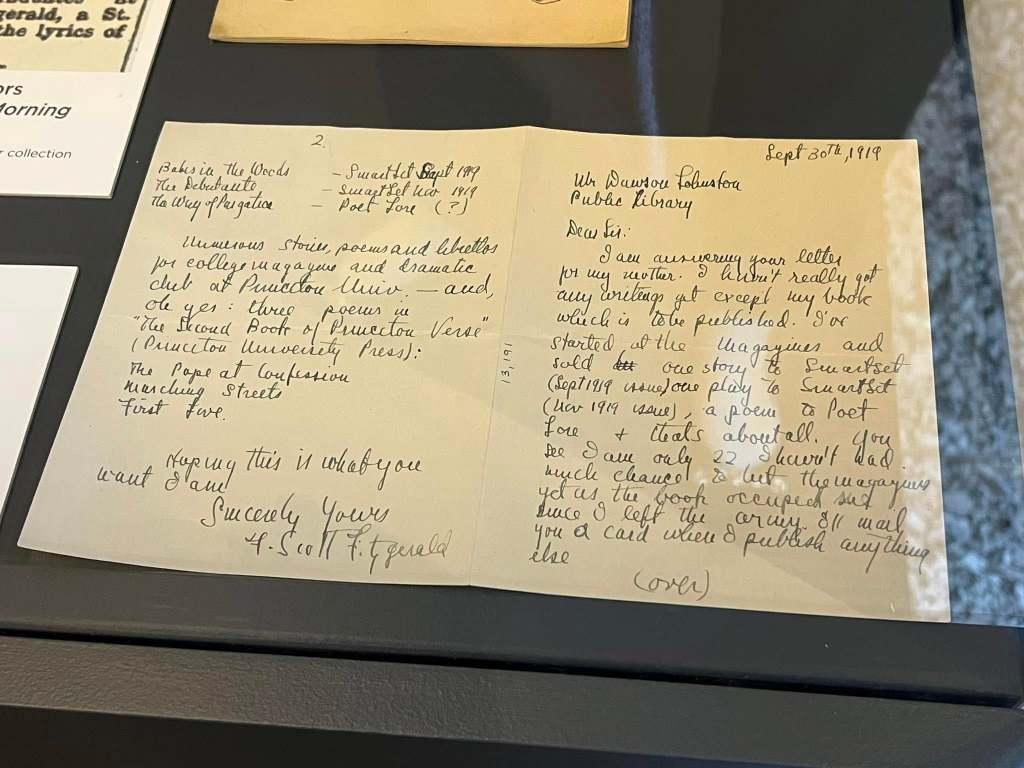 gerald, a St.
the lyrics of
ors
Morning
collection
Sept 30th, 1919
Mr Dawson Johnston
Public Library
Dear Sir:
I am answering your letter
for my mother. I haven't really got
any writings yet except my book
which is to be published. I've
started at the magazines and
sold one story to SmartSet
(Sept 1919 issue) one play to SmartSet
(Nov 1919 issue), a poem to Poet
Lore + thats about all. You
see I am only 22 I haven't had
much chance to hit the magazines
yet as the book occupied me
since I left the army. I'll mail
you a card when I publish anything
else
(over)
13,191
2.
Babes in the Woods – SmartSet Sept 1919
The Debutante – SmartSet Nov 1919
The Way of Purgation – Poet Lore (?)
Numerous stories, poems and librettos
for college magazine and dramatic
club at Princeton Univ. — and,
oh yes: three poems in
"The Second Book of Princeton Verse"
(Princeton University Press):
The Pope at Confession
Marching Streets
First Love.
Hoping this is what you
want I am
Sincerely Yours
F. Scott Fitzgerald